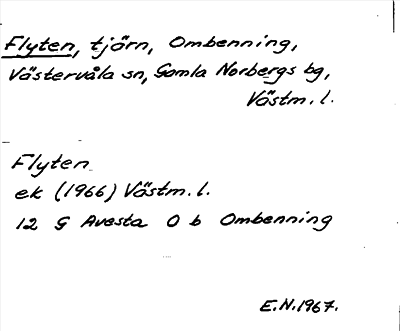 Flyten, tjärn, Ombenning,
Västervåla sn, Gamla Norbergs bg,
Västm. l.
Flyten
ek (1966) Västm. l.
12 G Avesta O b Ombenning
E.N. 1967.